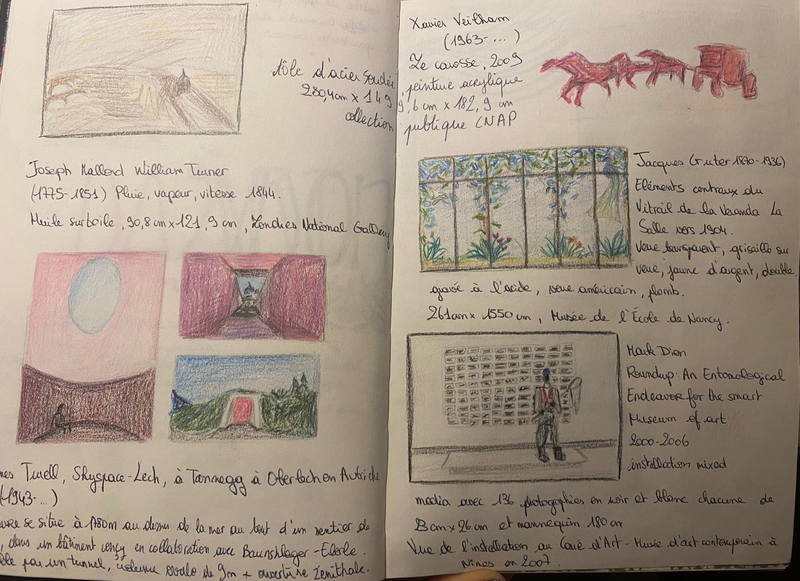 Joseph Mallord William Turner
(1775-1851) Pluie, vapeur, vitesse 1844.
Huile sur toile, 90,8 cm x 121,9 cm, Londres National Gallery
Turell, Skyspace-Lech, à Tannegg à Oberlech en Autriche
(1943-...)
se situe à 1780m au dessus de la mer au bout d'un sentier de
, dans un bâtiment conçu en collaboration avec Baumschlager-Eberle.
par un tunnel, volume ovale de 9m + ouverture Zénithale.
Xavier Veilham
(1963-...)
Le carosse, 2009
peinture acrylique
tôle d'acier soudée
280,4cm x 149
,6 cm x 182,9 cm
collection
publique CNAP
Jacques Gruber 1870-1936)
Eléments centraux du
Vitrail de la Veranda La
Salle vers 1904.
verre transparent, grisaille sur
verre, jaune d'argent, double
gravé à l'acide, verre américain, plomb.
261cm x 1550cm, Musée de l'École de Nancy.
Mark Dion
Roundup: An Entomological
Endeavor for the smart
Museum of art
2000-2006
installation mixed
media avec 136 photographies en noir et blanc chacune de
cm x 26 cm et mannequin 180 cm
Vue de l'installation au Carré d'Art - Musée d'art contemporain à
Nîmes en 2007.